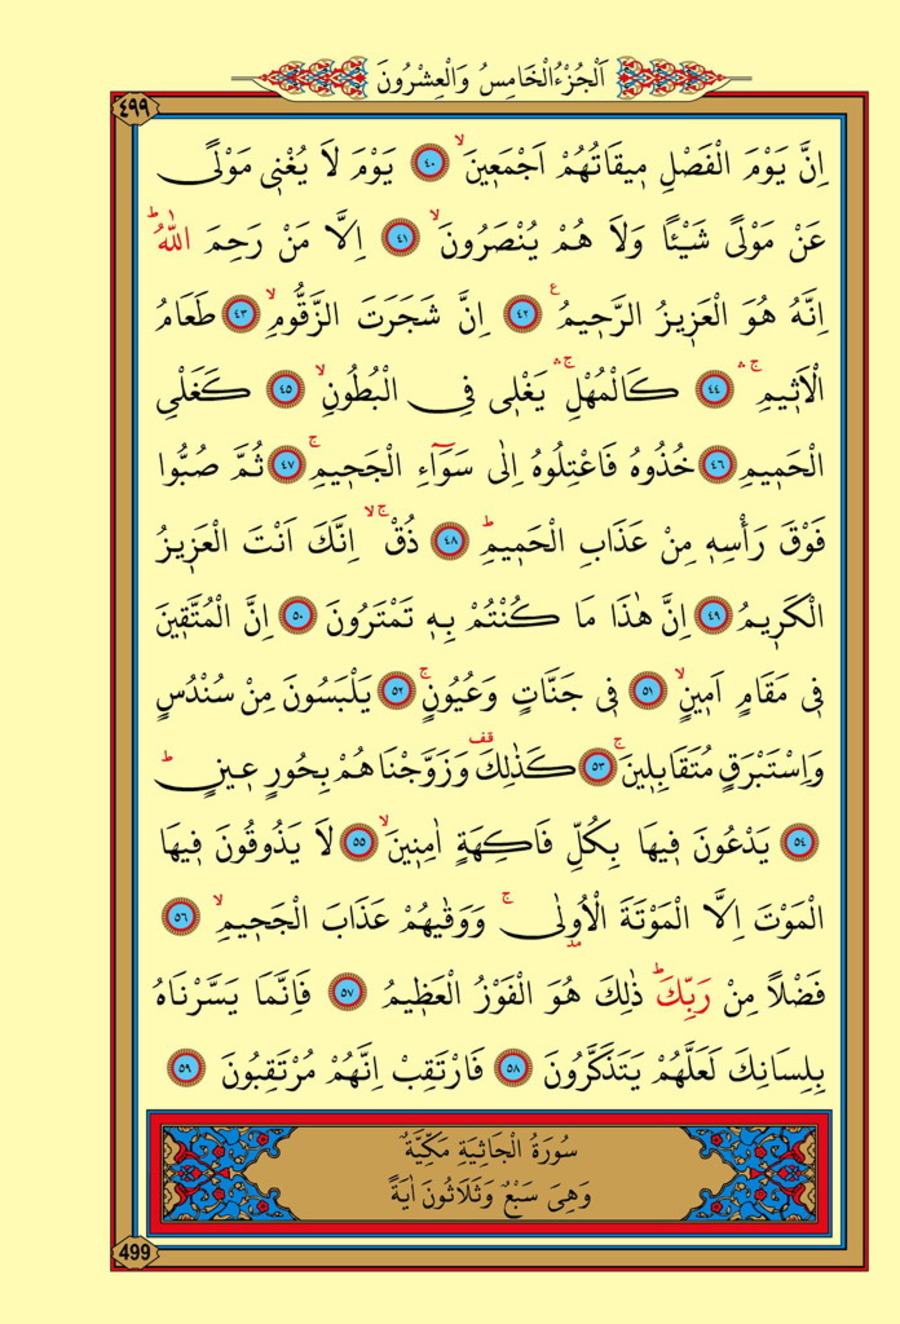 اَلْجُزْءُ الْخَامِسُ وَالْعِشْرُونَ
٤٩٩
اِنَّ يَوْمَ الْفَصْلِ م۪يقَاتُهُمْ اَجْمَع۪ينَۙ ﴿٤٠﴾ يَوْمَ لَا يُغْن۪ي مَوْلًى
عَنْ مَوْلًى شَيْـًٔا وَلَا هُمْ يُنْصَرُونَۙ ﴿٤١﴾ اِلَّا مَنْ رَحِمَ اللّٰهُۜ
اِنَّهُ هُوَ الْعَز۪يزُ الرَّح۪يمُ۟ ﴿٤٢﴾ اِنَّ شَجَرَتَ الزَّقُّومِۙ ﴿٤٣﴾ طَعَامُ
الْاَث۪يمِۚۛ ﴿٤٤﴾ كَالْمُهْلِۚۛ يَغْل۪ي فِي الْبُطُونِۙ ﴿٤٥﴾ كَغَلْيِ
الْحَم۪يمِ ﴿٤٦﴾ خُذُوهُ فَاعْتِلُوهُ اِلٰى سَوَٓاءِ الْجَح۪يمِۚ ﴿٤٧﴾ ثُمَّ صُبُّوا
فَوْقَ رَأْسِه۪ مِنْ عَذَابِ الْحَم۪يمِۜ ﴿٤٨﴾ ذُقْۚۙ اِنَّكَ اَنْتَ الْعَز۪يزُ
الْكَر۪يمُ ﴿٤٩﴾ اِنَّ هٰذَا مَا كُنْتُمْ بِه۪ تَمْتَرُونَ ﴿٥٠﴾ اِنَّ الْمُتَّق۪ينَ
ف۪ي مَقَامٍ اَم۪ينٍۙ ﴿٥١﴾ ف۪ي جَنَّاتٍ وَعُيُونٍۚ ﴿٥٢﴾ يَلْبَسُونَ مِنْ سُنْدُسٍ
وَاِسْتَبْرَقٍ مُتَقَابِل۪ينَۚ ﴿٥٣﴾ كَذٰلِكَ قف وَزَوَّجْنَاهُمْ بِحُورٍ ع۪ينٍۜ
﴿٥٤﴾ يَدْعُونَ ف۪يهَا بِكُلِّ فَاكِهَةٍ اٰمِن۪ينَۙ ﴿٥٥﴾ لَا يَذُوقُونَ ف۪يهَا
الْمَوْتَ اِلَّا الْمَوْتَةَ الْاُو۫لٰىۚ وَوَقٰيهُمْ عَذَابَ الْجَح۪يمِۙ ﴿٥٦﴾
فَضْلًا مِنْ رَبِّكَۜ ذٰلِكَ هُوَ الْفَوْزُ الْعَظ۪يمُ ﴿٥٧﴾ فَاِنَّمَا يَسَّرْنَاهُ
بِلِسَانِكَ لَعَلَّهُمْ يَتَذَكَّرُونَ ﴿٥٨﴾ فَارْتَقِبْ اِنَّهُمْ مُرْتَقِبُونَ ﴿٥٩﴾
سُورَةُ الْجَاثِيَةِ مَكِّيَّةٌ
وَهِيَ سَبْعٌ وَثَلَاثُونَ اٰيَةً
499